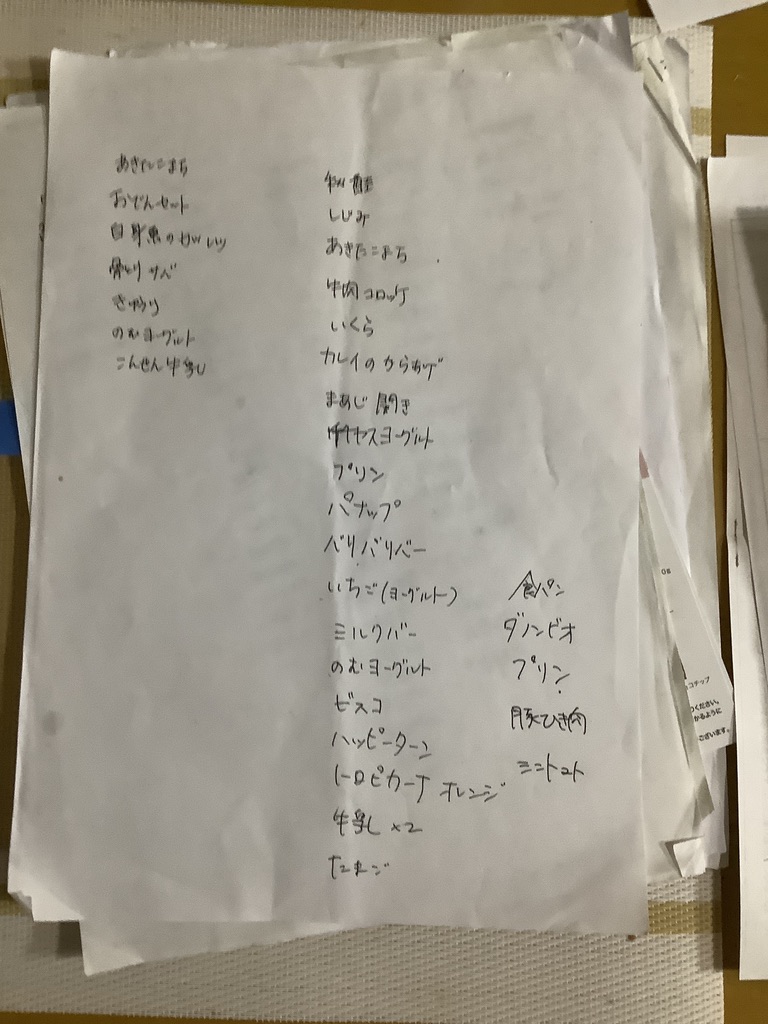 あきたこまち
おでんセット
白身魚のカツレツ
骨とりサバ
きゅうり
のむヨーグルト
こんせん牛乳
しじみ
あきたこまち
牛肉コロッケ
いくら
カレイのからあげ
まあじ開き
ヨーグルト
プリン
パナップ
バリバリバー
いちご(ヨーグルト)
ミルクバー
のむヨーグルト
ビスコ
ハッピーターン
トロピカーナ オレンジ
牛乳 x2
たまご
食パン
ダノンビオ
プリン
豚ひき肉
ミニトマト
コチップ
ください。
かるように
ございます。